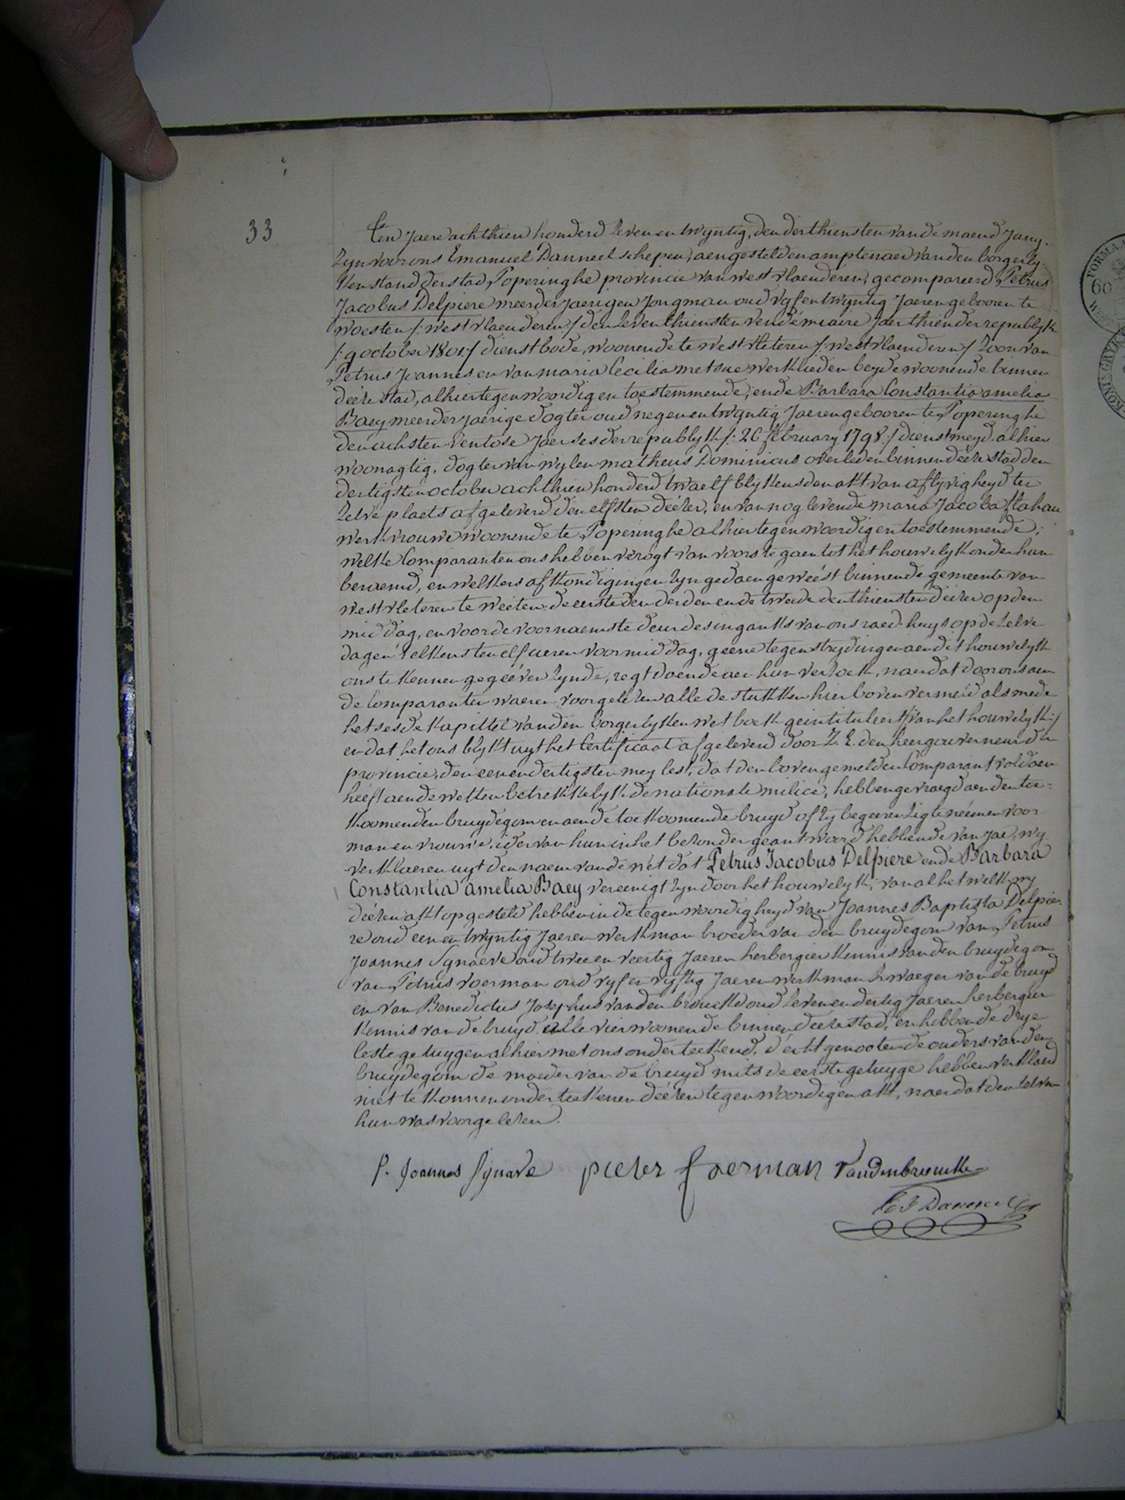 33
Ten Jaere achthien honderd zeven en twyntig, den derthiensten van de maend Juny
zyn voor ons Emanuel Danneel schepen, aengestelden amptenaer van den borgerly-
ken stand der stad Poperinghe provincie van westvlaenderen, gecompareerd Petrus
Jacobus Delpiere meerderjaerigen Jongman oud vyf en twyntig Jaeren gebooren te
woesten /: westvlaenderen :/ den zeventhiensten vendémiaire Jaer thien der republyk
/: 9 october 1801 :/ dienstbode, woonende te westvleteren /: westvlaenderen :/ Zoon van
Petrus Joannes en van maria Cecilia metsue werklieden beyde woonende binnen
deéze stad, alhier tegenwoordig en toestemmende, ende Barbara Constantia amelia
Baey meerderjaerige dogter oud negen en twyntig Jaeren gebooren te Poperinghe
den achsten ventose Jaer ses der republyk /: 26 february 1798 :/ dienstmeyd alhier
woonagtig, dogter van wylen matheus Dominicus overleden binnen deéze stad den
dertigsten october achthien honderd twaelf blykens den akt van aflyvigheyd ter
zelve plaets afgeleverd den elfsten deézer, en van nog levende maria Jacoba
werkvrouwe woonende te Poperinghe alhier tegenwoordig en toestemmende;
welke Comparanten ons hebben verzogt van voorts te gaen tot het houwelyk onder hun
beraemd, en welkers afkondigingen zyn gedaen geweést binnen de gemeente van
westvleteren te weéten de eerste den derden ende tweede den thiensten deézer op den
middag, en voor de voornaemste deur des ingank van ons raedhuys op de zelve
dagen telkens ten elf ueren voormiddag, geene tegenstrydingen aen dit houwelyk
ons te kennen gegeéven zynde, regt doende aen hun verzoek, naer dat door ons aen
de Comparanten waeren voorgelezen alle de stukken hier boven vermeld als mede
het sesde kapittel van den borgerlyken wetboek geintituleert /: van het houwelyk :/
en dat het ons blykt uyt het Certificaet afgeleverd door Z. E. den heer gouverneur der
provincie, den een en dertigsten mey lest, dat den boven gemelden Comparant voldaen
heeft aen de wetten betrekkelyk de nationale milicie, hebben gevraegd aen den toe-
koomenden bruydegom en aen de toekoomende bruyd of zy begeeren zig te néemen voor
man en vrouwe, ider van hun in het bezonder geantwoord hebbende van Jae, wy
verklaeren uyt den naem van de wet dat Petrus Jacobus Delpiere ende Barbara
Constantia amelia Baey vereenigt zyn door het houwelyk; van al het welk wy
deézen akt opgesteld hebben in de tegenwoordigheyd van Joannes Baptista Delpie-
re oud een en twyntig Jaeren werkman broeder van den bruydegom van Petrus
Joannes Synaeve oud twee en veertig Jaeren herbergier kennis van den bruydegom
van Petrus voerman oud vyf en vyftig Jaeren werkman zwaeger van de bruyd
en van Benedictus Josephus vanden broucke oud zeven en dertig Jaeren herbergier
kennis van de bruyd alle vier woonende binnen deéze stad, en hebben de drye
leste getuygen alhier met ons onderteekend, d'echtgenooten de ouders van den
bruydegom de moeder van de bruyd mits de eerste getuyge hebben verklaerd
niet te konnen onderteekenen deézen tegenwoordigen akt, naer dat den zelven
hun was voorgelezen.
P. Joannes Synave pieter foerman Vandenbroucke
E J Danneel
FORMA
60